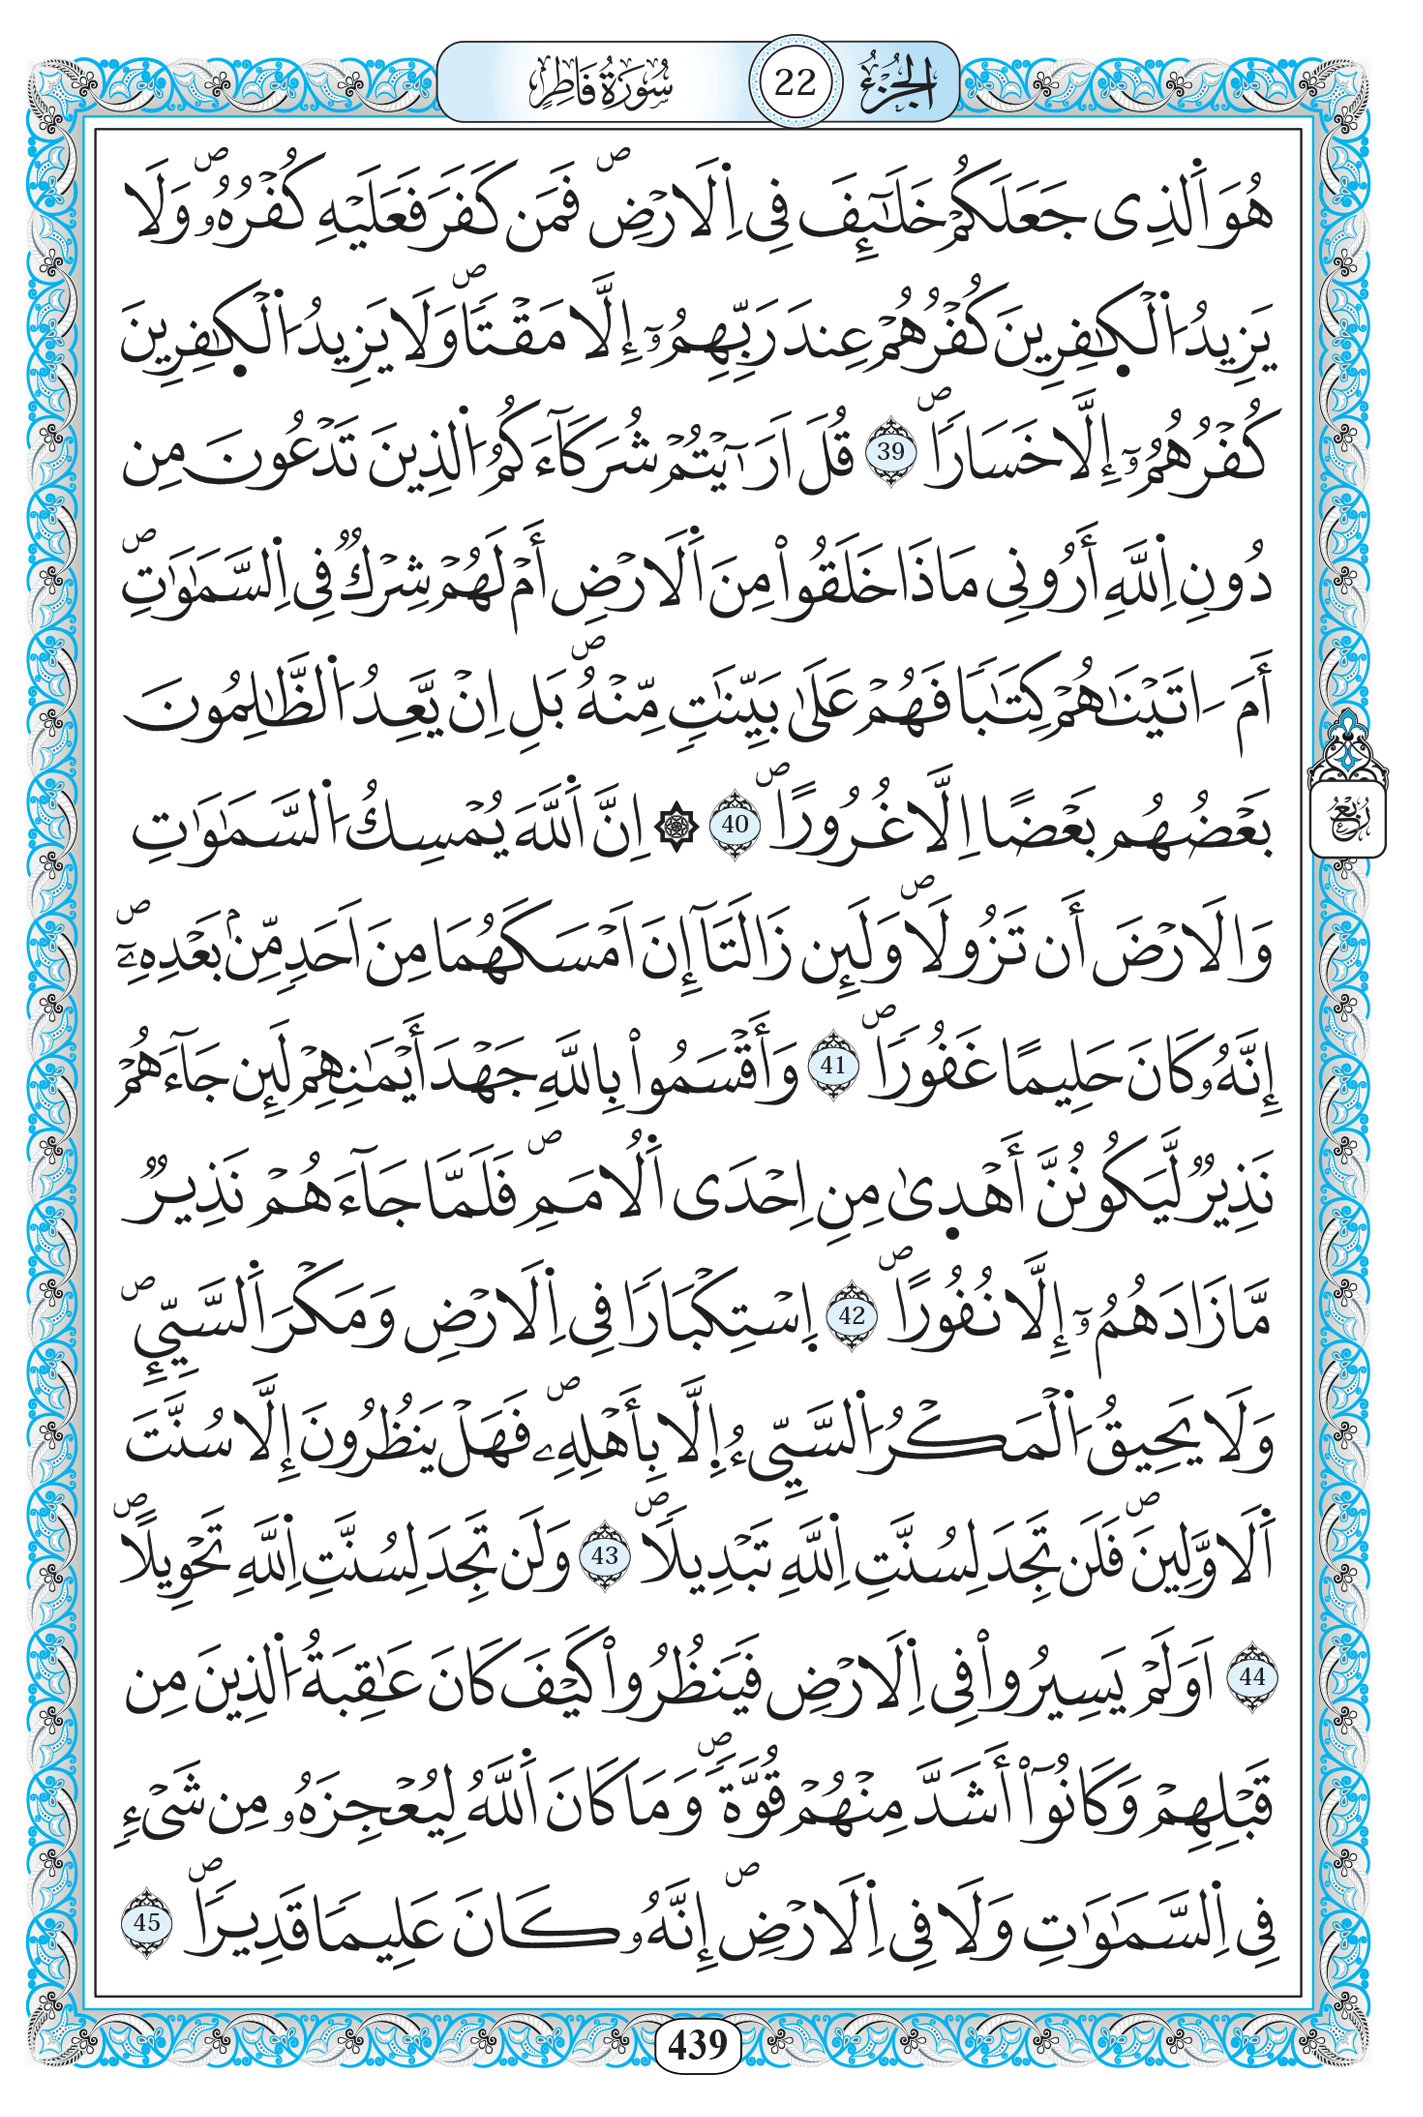 الجزء 22 سورة فاطر
هُوَ اَ۬لذِے جَعَلَكُمْ خَلَٰٓئِفَ فِے اِ۬لَارْضِۖ فَمَن كَفَرَ فَعَلَيْهِ كُفْرُهُۥۖ وَلَا
يَزِيدُ اُ۬لْكٰ۪فِرِينَ كُفْرُهُمْ عِندَ رَبِّهِمُۥٓ إِلَّا مَقْتاٗۖ وَلَا يَزِيدُ اُ۬لْكٰ۪فِرِينَ
كُفْرُهُمُۥٓ إِلَّا خَسَاراٗۖ 39 قُلَ اَرَٰٓيْتُمْ شُرَكَآءَكُمُ اُ۬لذِينَ تَدْعُونَ مِن
دُونِ اِ۬للَّهِ أَرُونِے مَاذَا خَلَقُواْ مِنَ اَ۬لَارْضِ أَمْ لَهُمْ شِرْكٞ فِے اِ۬لسَّمَٰوَٰتِۖ
أَمَ اٰتَيْنَٰهُمْ كِتَٰباٗ فَهُمْ عَلَىٰ بَيِّنَٰتٖ مِّنْهُۖ بَلِ اِنْ يَّعِدُ اُ۬لظَّٰلِمُونَ
بَعْضُهُم بَعْضاً اِلَّا غُرُوراًۖ 40 ۞ اِنَّ اَ۬للَّهَ يُمْسِكُ اُ۬لسَّمَٰوَٰتِ
وَالَارْضَ أَن تَزُولَاۖ وَلَئِن زَالَتَآ إِنَ اَمْسَكَهُمَا مِنَ اَحَدٖ مِّنۢ بَعْدِهِۦٓۖ
إِنَّهُۥ كَانَ حَلِيماً غَفُوراٗۖ 41 وَأَقْسَمُواْ بِاللَّهِ جَهْدَ أَيْمَٰنِهِمْ لَئِن جَآءَهُمْ
نَذِيرٞ لَّيَكُونُنَّ أَهْد۪ىٰ مِنِ اِحْدَى اَ۬لُامَمِۖ فَلَمَّا جَآءَهُمْ نَذِيرٞ
مَّا زَادَهُمُۥٓ إِلَّا نُفُوراًۖ 42 اِ۪سْتِكْبَاراٗ فِے اِ۬لَارْضِ وَمَكْرَ اَ۬لسَّيِّئِۖ
وَلَا يَحِيقُ اُ۬لْمَكْرُ اُ۬لسَّيِّئُ إِلَّا بِأَهْلِهِۦۖ فَهَلْ يَنظُرُونَ إِلَّا سُنَّتَ
اَ۬لَاوَّلِينَۖ فَلَن تَجِدَ لِسُنَّتِ اِ۬للَّهِ تَبْدِيلاٗۖ 43 وَلَن تَجِدَ لِسُنَّتِ اِ۬للَّهِ تَحْوِيلاًۖ
44 اَوَلَمْ يَسِيرُواْ فِے اِ۬لَارْضِ فَيَنظُرُواْ كَيْفَ كَانَ عَٰقِبَةُ اُ۬لذِينَ مِن
قَبْلِهِمْ وَكَانُوٓاْ أَشَدَّ مِنْهُمْ قُوَّةٗۖ وَمَا كَانَ اَ۬للَّهُ لِيُعْجِزَهُۥ مِن شَےْءٖ
فِے اِ۬لسَّمَٰوَٰتِ وَلَا فِے اِ۬لَارْضِۖ إِنَّهُۥ كَانَ عَلِيماٗ قَدِيراٗۖ 45
ربع
439